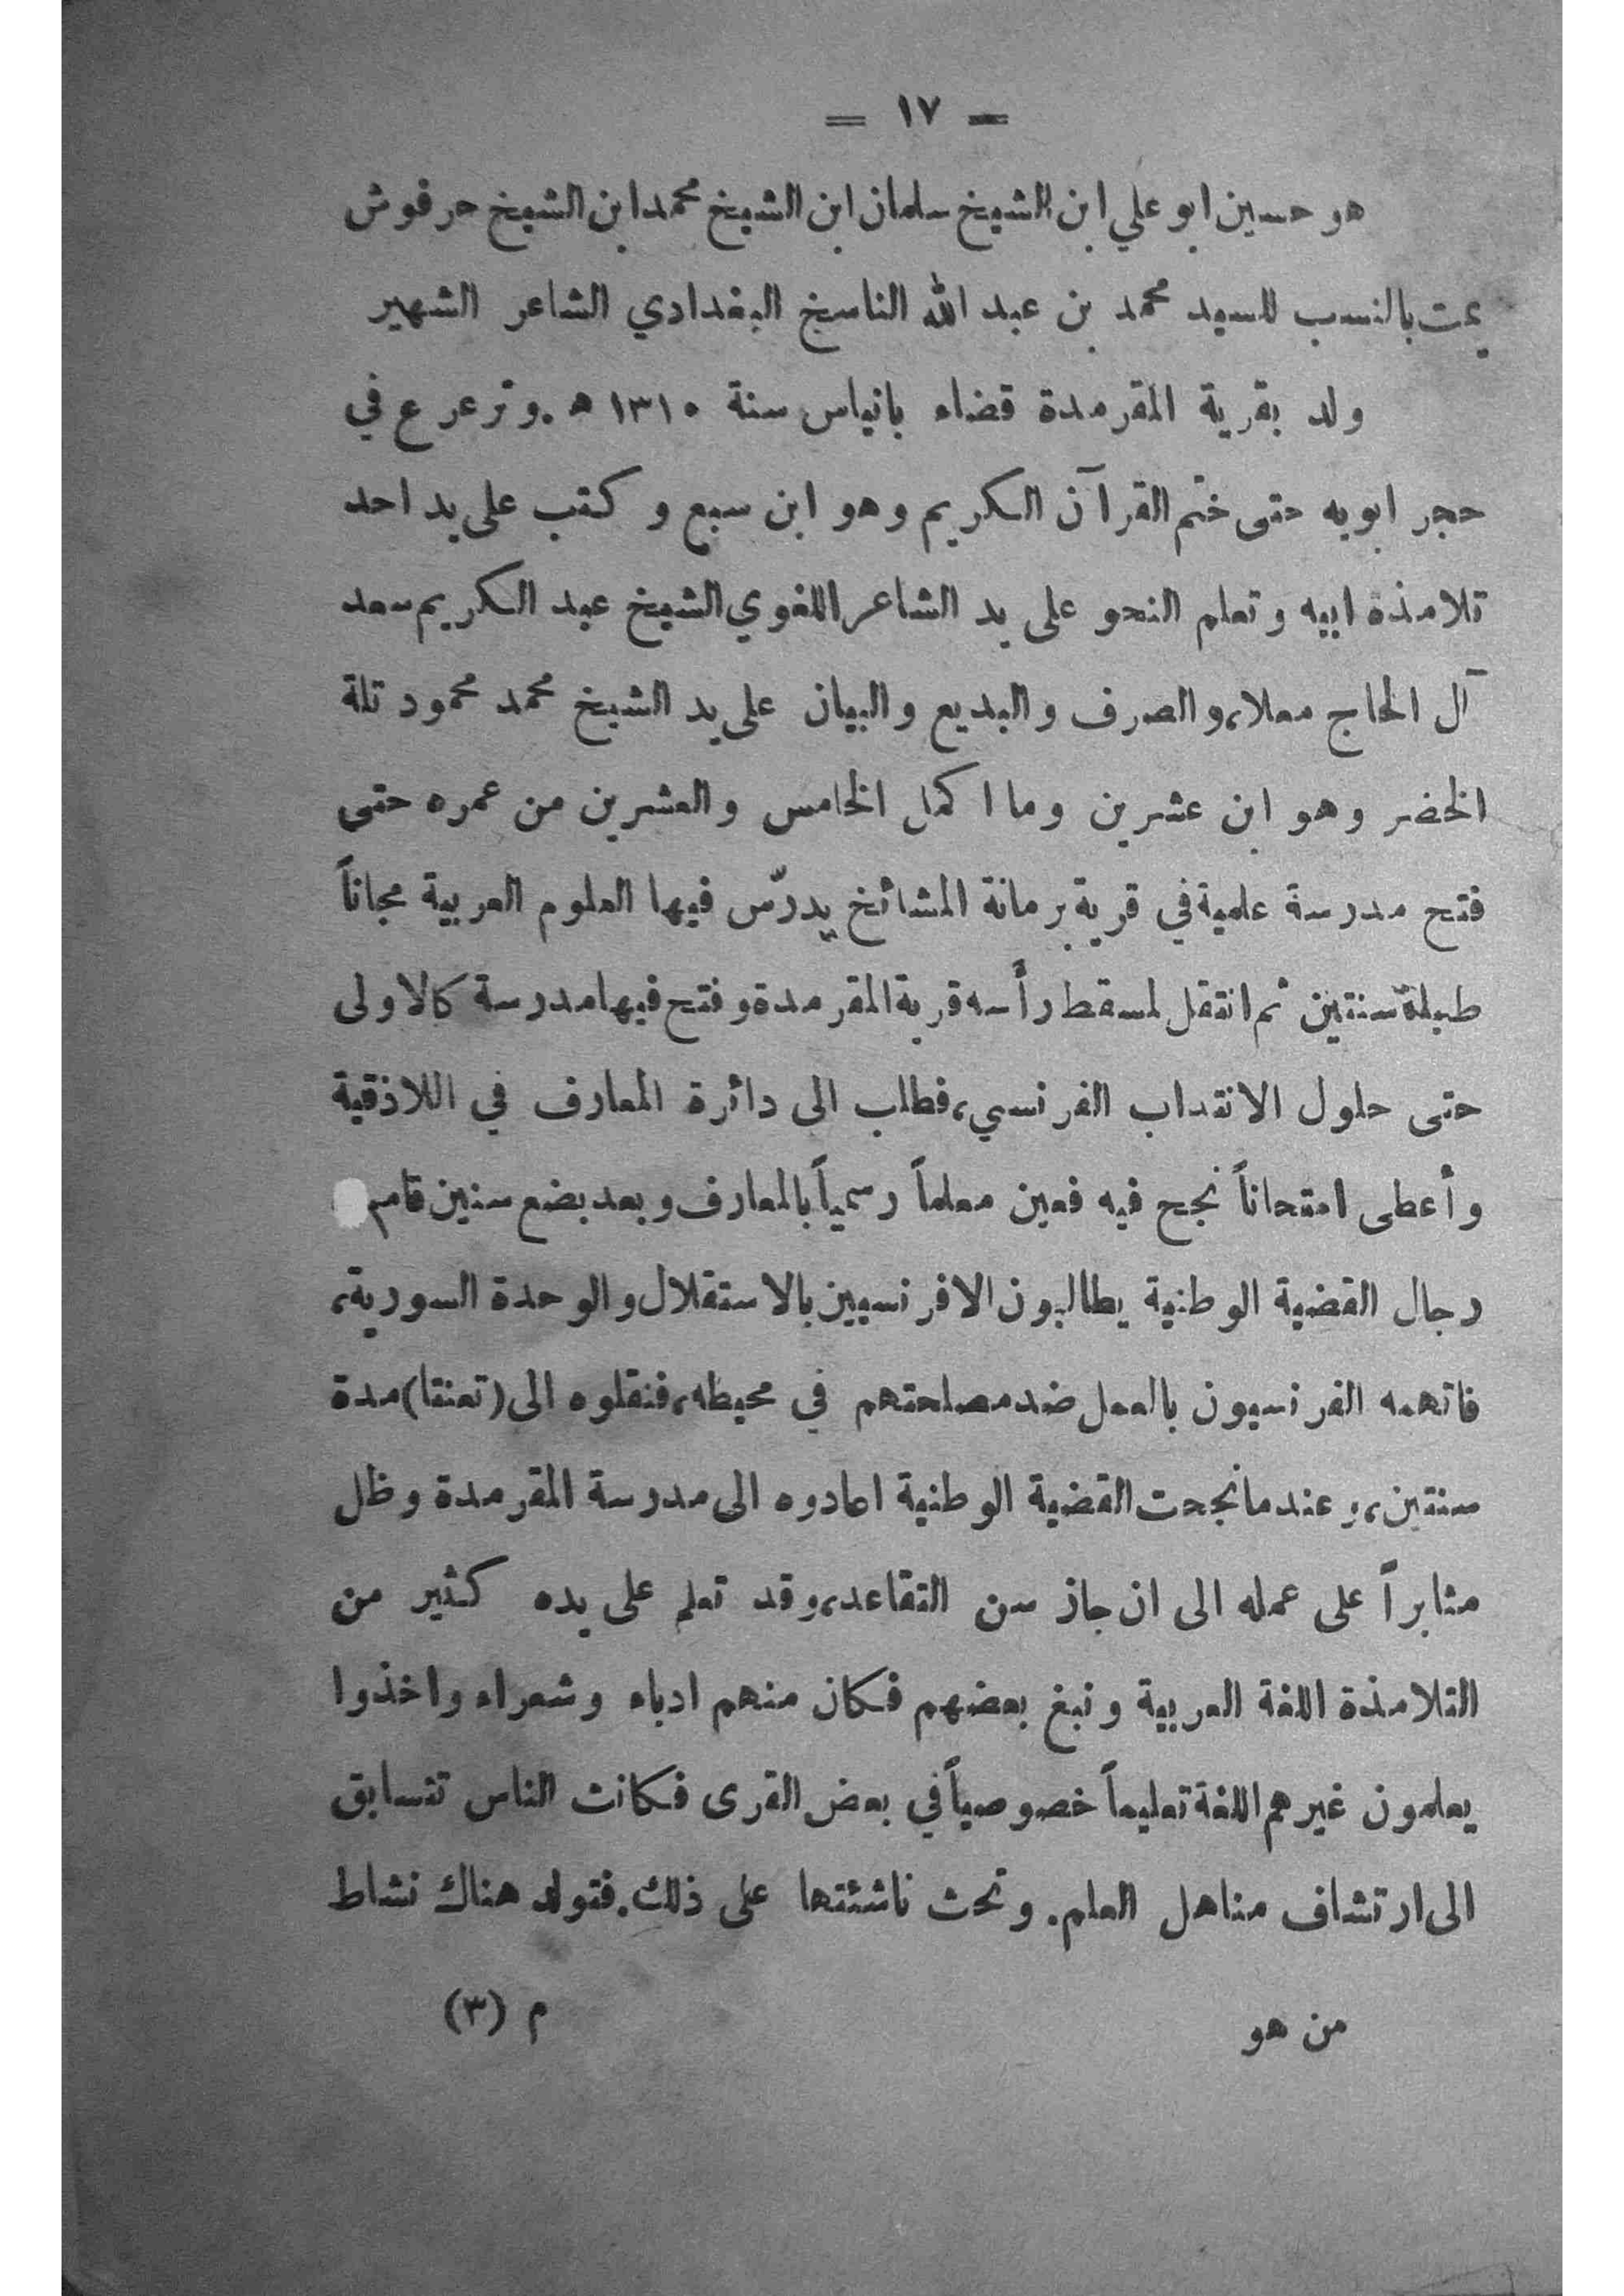 = ١٧ =
هو حسين ابو علي ابن الشيخ سلمان ابن الشيخ محمد ابن الشيخ حرفوش
يمت بالنسب للسيد محمد بن عبد الله الناسخ البغدادي الشاعر الشهير
ولد بقرية المقرمدة قضاء بانياس سنة ١٣١٠ ه .وترعرع في
حجر ابويه حتى ختم القرآن الكريم وهو ابن سبع و كتب على يد احد
تلامذة ابيه وتعلم النحو على يد الشاعر اللغوي الشيخ عبد الكريم سعد
آل الحاج معلا، والصرف والبديع والبيان على يد الشيخ محمد محمود تلة
الخضر وهو ابن عشرين وما اكمل الخامس والعشرين من عمره حتى
فتح مدرسة علمية في قرية برمانة المشائخ يدرّس فيها العلوم العربية مجاناً
طيلة سنتين ثم انتقل لمسقط رأسه قرية المقرمدة وفتح فيها مدرسة كالاولى
حتى حلول الانتداب الفرنسي، فطلب الى دائرة المعارف في اللاذقية
وأعطى امتحاناً نجح فيه فعين معلماً رسمياً بالمعارف وبعد بضع سنين قام
رجال القضية الوطنية يطالبون الافرنسيين بالاستقلال والوحدة السورية،
فاتهمه الفرنسيون بالعمل ضد مصلحتهم في محيطه، فنقلوه الى (تعنقا) مدة
سنتين، وعندما نجحت القضية الوطنية اعادوه الى مدرسة المقرمدة وظل
مثابراً على عمله الى ان جاز سن التقاعد، وقد تعلم على يده كثير من
التلامذة اللغة العربية ونبغ بعضهم فكان منهم ادباء وشعراء واخذوا
يعلمون غيرهم اللغة تعليماً خصوصياً في بعض القرى فكانت الناس تتسابق
الى ارتشاف مناهل العلم. وتحث ناشئتها على ذلك. فتولد هناك نشاط
من هو م (٣)